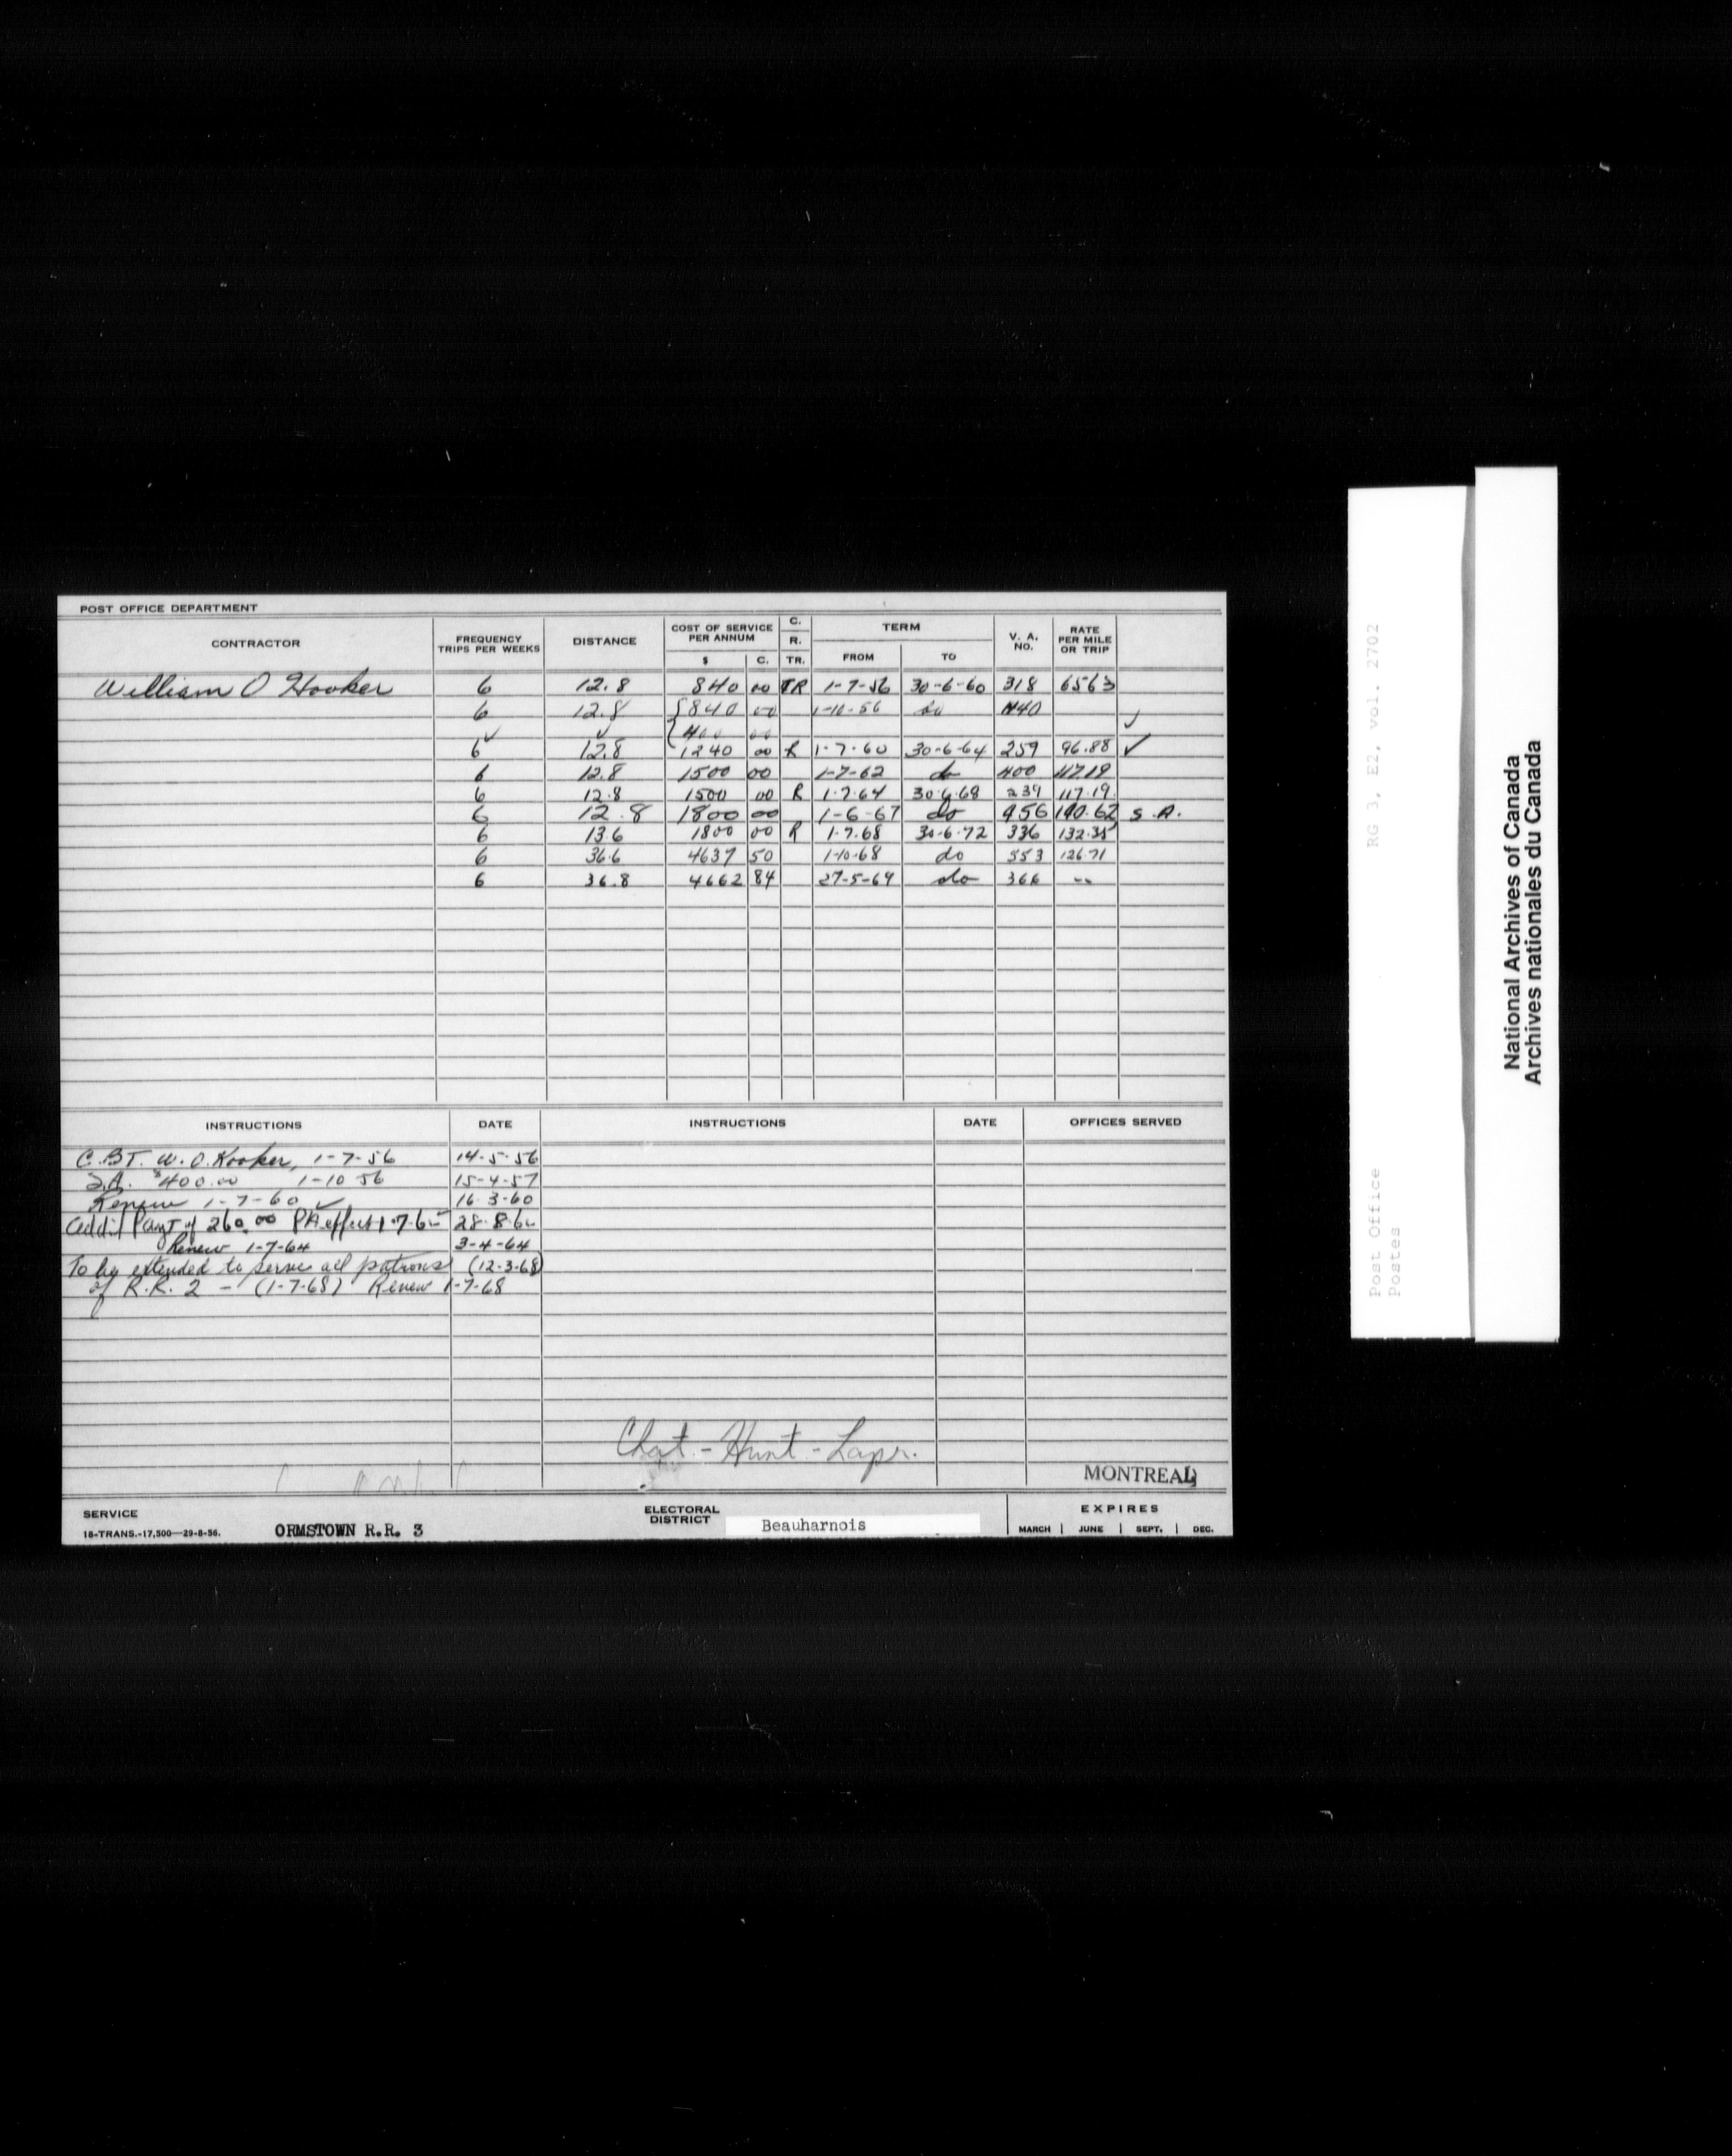 POST OFFICE DEPARTMENT
CONTRACTOR FREQUENCY TRIPS PER WEEKS DISTANCE COST OF SERVICE PER ANNUM $ C. C. R. TR. TERM FROM TO V. A. NO. RATE PER MILE OR TRIP
William O Hooker 6 12.8 840 00 TR 1-7-56 30-6-60 318 6563
6 12.8 {840 00 1-10-56 do 440
✓ ✓ {400 00 ✓
6 12.8 1240 00 R 1-7-60 30-6-64 259 96.88 ✓
6 12.8 1500 00 1-7-62 do 400 117.19
6 12.8 1500 00 R 1-7-64 30-6-68 239 117.19
6 12.8 1800 00 1-6-67 do 956 140.62 S.A.
6 13.6 1800 00 R 1-7-68 30-6-72 336 132.35
6 36.6 4637 50 1-10-68 do 553 126.71
6 36.8 4662 84 27-5-69 do 366 --
INSTRUCTIONS DATE INSTRUCTIONS DATE OFFICES SERVED
C.B.T. W. O. Hooker, 1-7-56 14-5-56
S.A. $400.00 1-10-56 15-4-57
Renew 1-7-60 ✓ 16-3-60
Addit Payt of 260.00 PA effect 1-7-62 28-8-62
Renew 1-7-64 3-4-64
To be extended to serve all patrons (12-3-68)
of R.R. 2 - (1-7-68) Renew 1-7-68
Chat. - Hunt - Lapr.
MONTREAL
SERVICE
18-TRANS.-17,500—29-8-56.
ORMSTOWN R.R. 3
ELECTORAL DISTRICT
Beauharnois
EXPIRES
MARCH | JUNE | SEPT. | DEC.
RG 3, E2, vol. 2702
Post Office
Postes
National Archives of Canada
Archives nationales du Canada